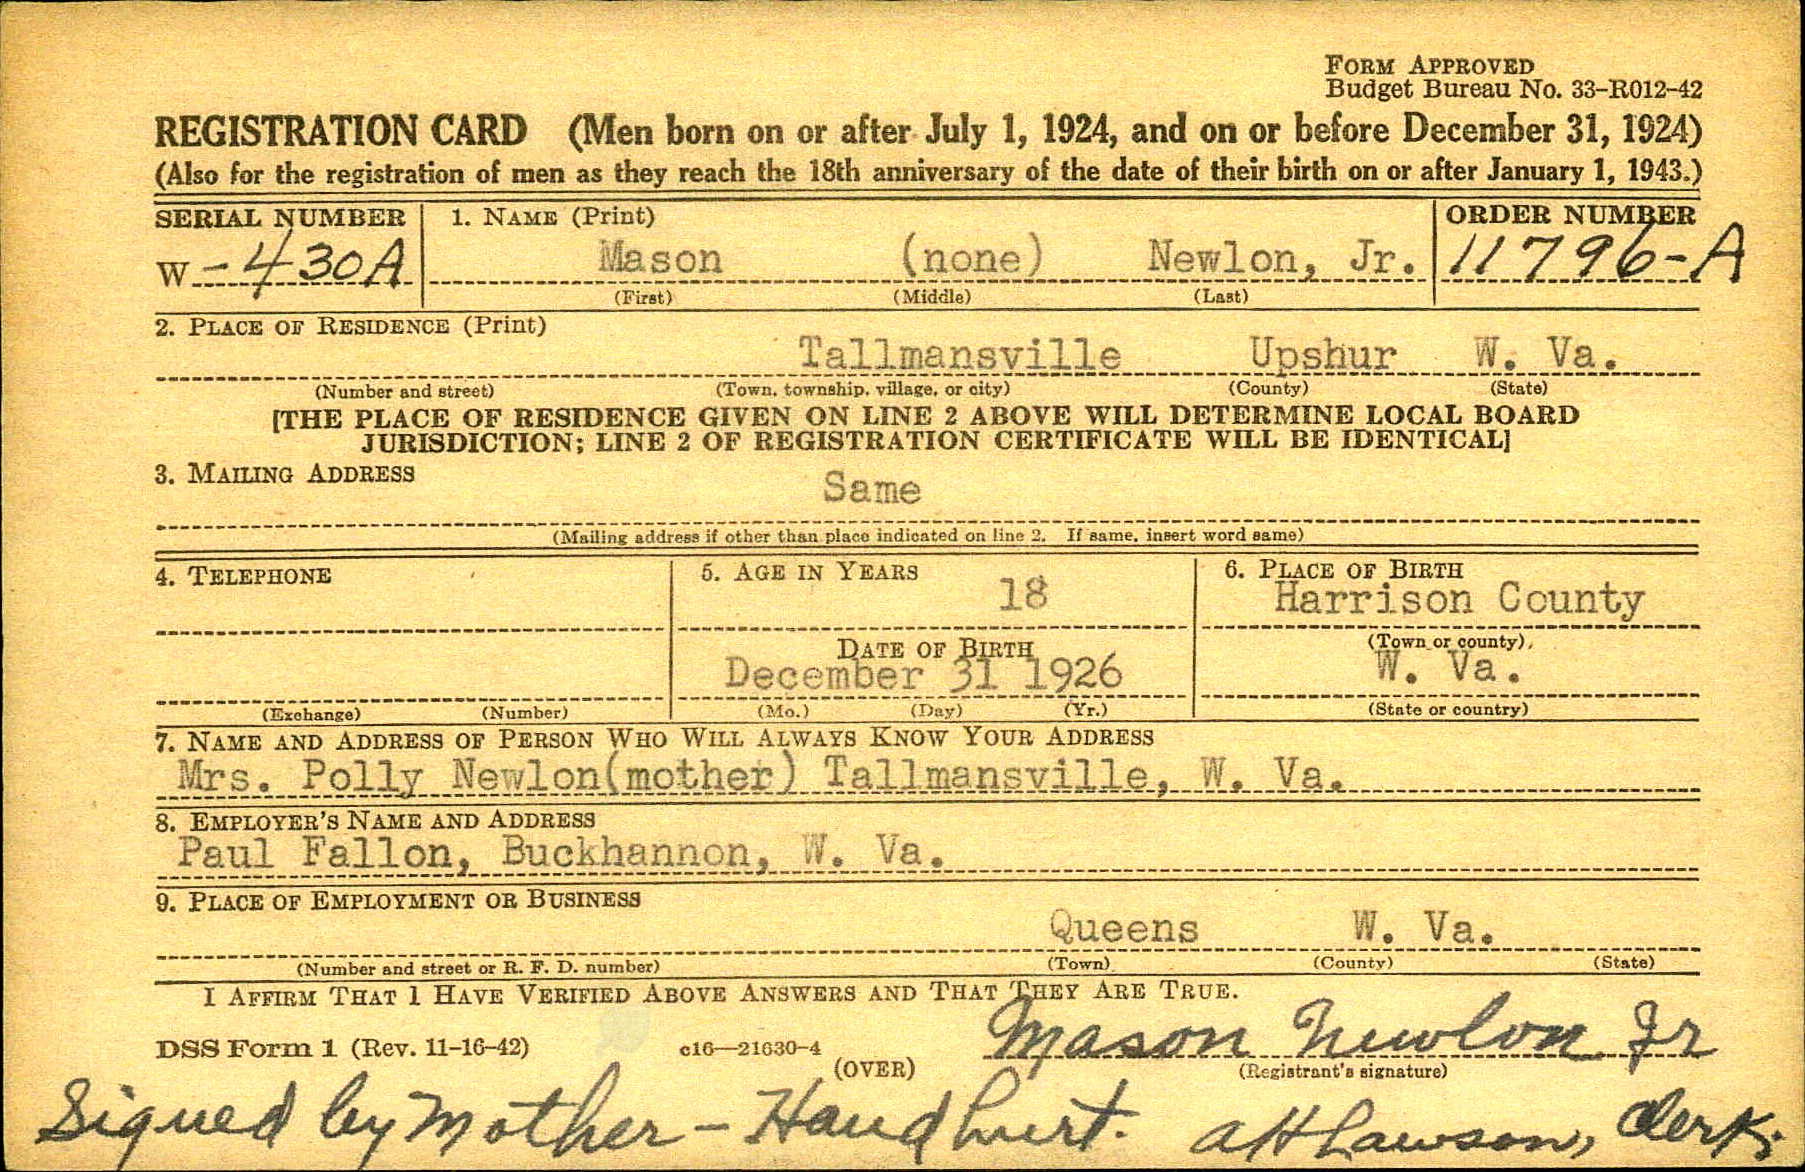 FORM APPROVED
Budget Bureau No. 33-R012-42
REGISTRATION CARD (Men born on or after July 1, 1924, and on or before December 31, 1924)
(Also for the registration of men as they reach the 18th anniversary of the date of their birth on or after January 1, 1943.)
SERIAL NUMBER 1. NAME (Print) ORDER NUMBER
W -430A Mason (none) Newlon, Jr. 11796-A
(First) (Middle) (Last)
2. PLACE OF RESIDENCE (Print)
Tallmansville Upshur W. Va.
(Number and street) (Town, township, village, or city) (County) (State)
[THE PLACE OF RESIDENCE GIVEN ON LINE 2 ABOVE WILL DETERMINE LOCAL BOARD
JURISDICTION; LINE 2 OF REGISTRATION CERTIFICATE WILL BE IDENTICAL]
3. MAILING ADDRESS
Same
(Mailing address if other than place indicated on line 2. If same, insert word same)
4. TELEPHONE 5. AGE IN YEARS 6. PLACE OF BIRTH
18 Harrison County
DATE OF BIRTH (Town or county)
December 31 1926 W. Va.
(Exchange) (Number) (Mo.) (Day) (Yr.) (State or country)
7. NAME AND ADDRESS OF PERSON WHO WILL ALWAYS KNOW YOUR ADDRESS
Mrs. Polly Newlon(mother) Tallmansville, W. Va.
8. EMPLOYER'S NAME AND ADDRESS
Paul Fallon, Buckhannon, W. Va.
9. PLACE OF EMPLOYMENT OR BUSINESS
Queens W. Va.
(Number and street or R. F. D. number) (Town) (County) (State)
I AFFIRM THAT I HAVE VERIFIED ABOVE ANSWERS AND THAT THEY ARE TRUE.
Mason Newlon Jr
DSS Form 1 (Rev. 11-16-42) c16—21630-4 (OVER) (Registrant's signature)
Signed by Mother - Hand hurt. A H Lawson, Clerk.